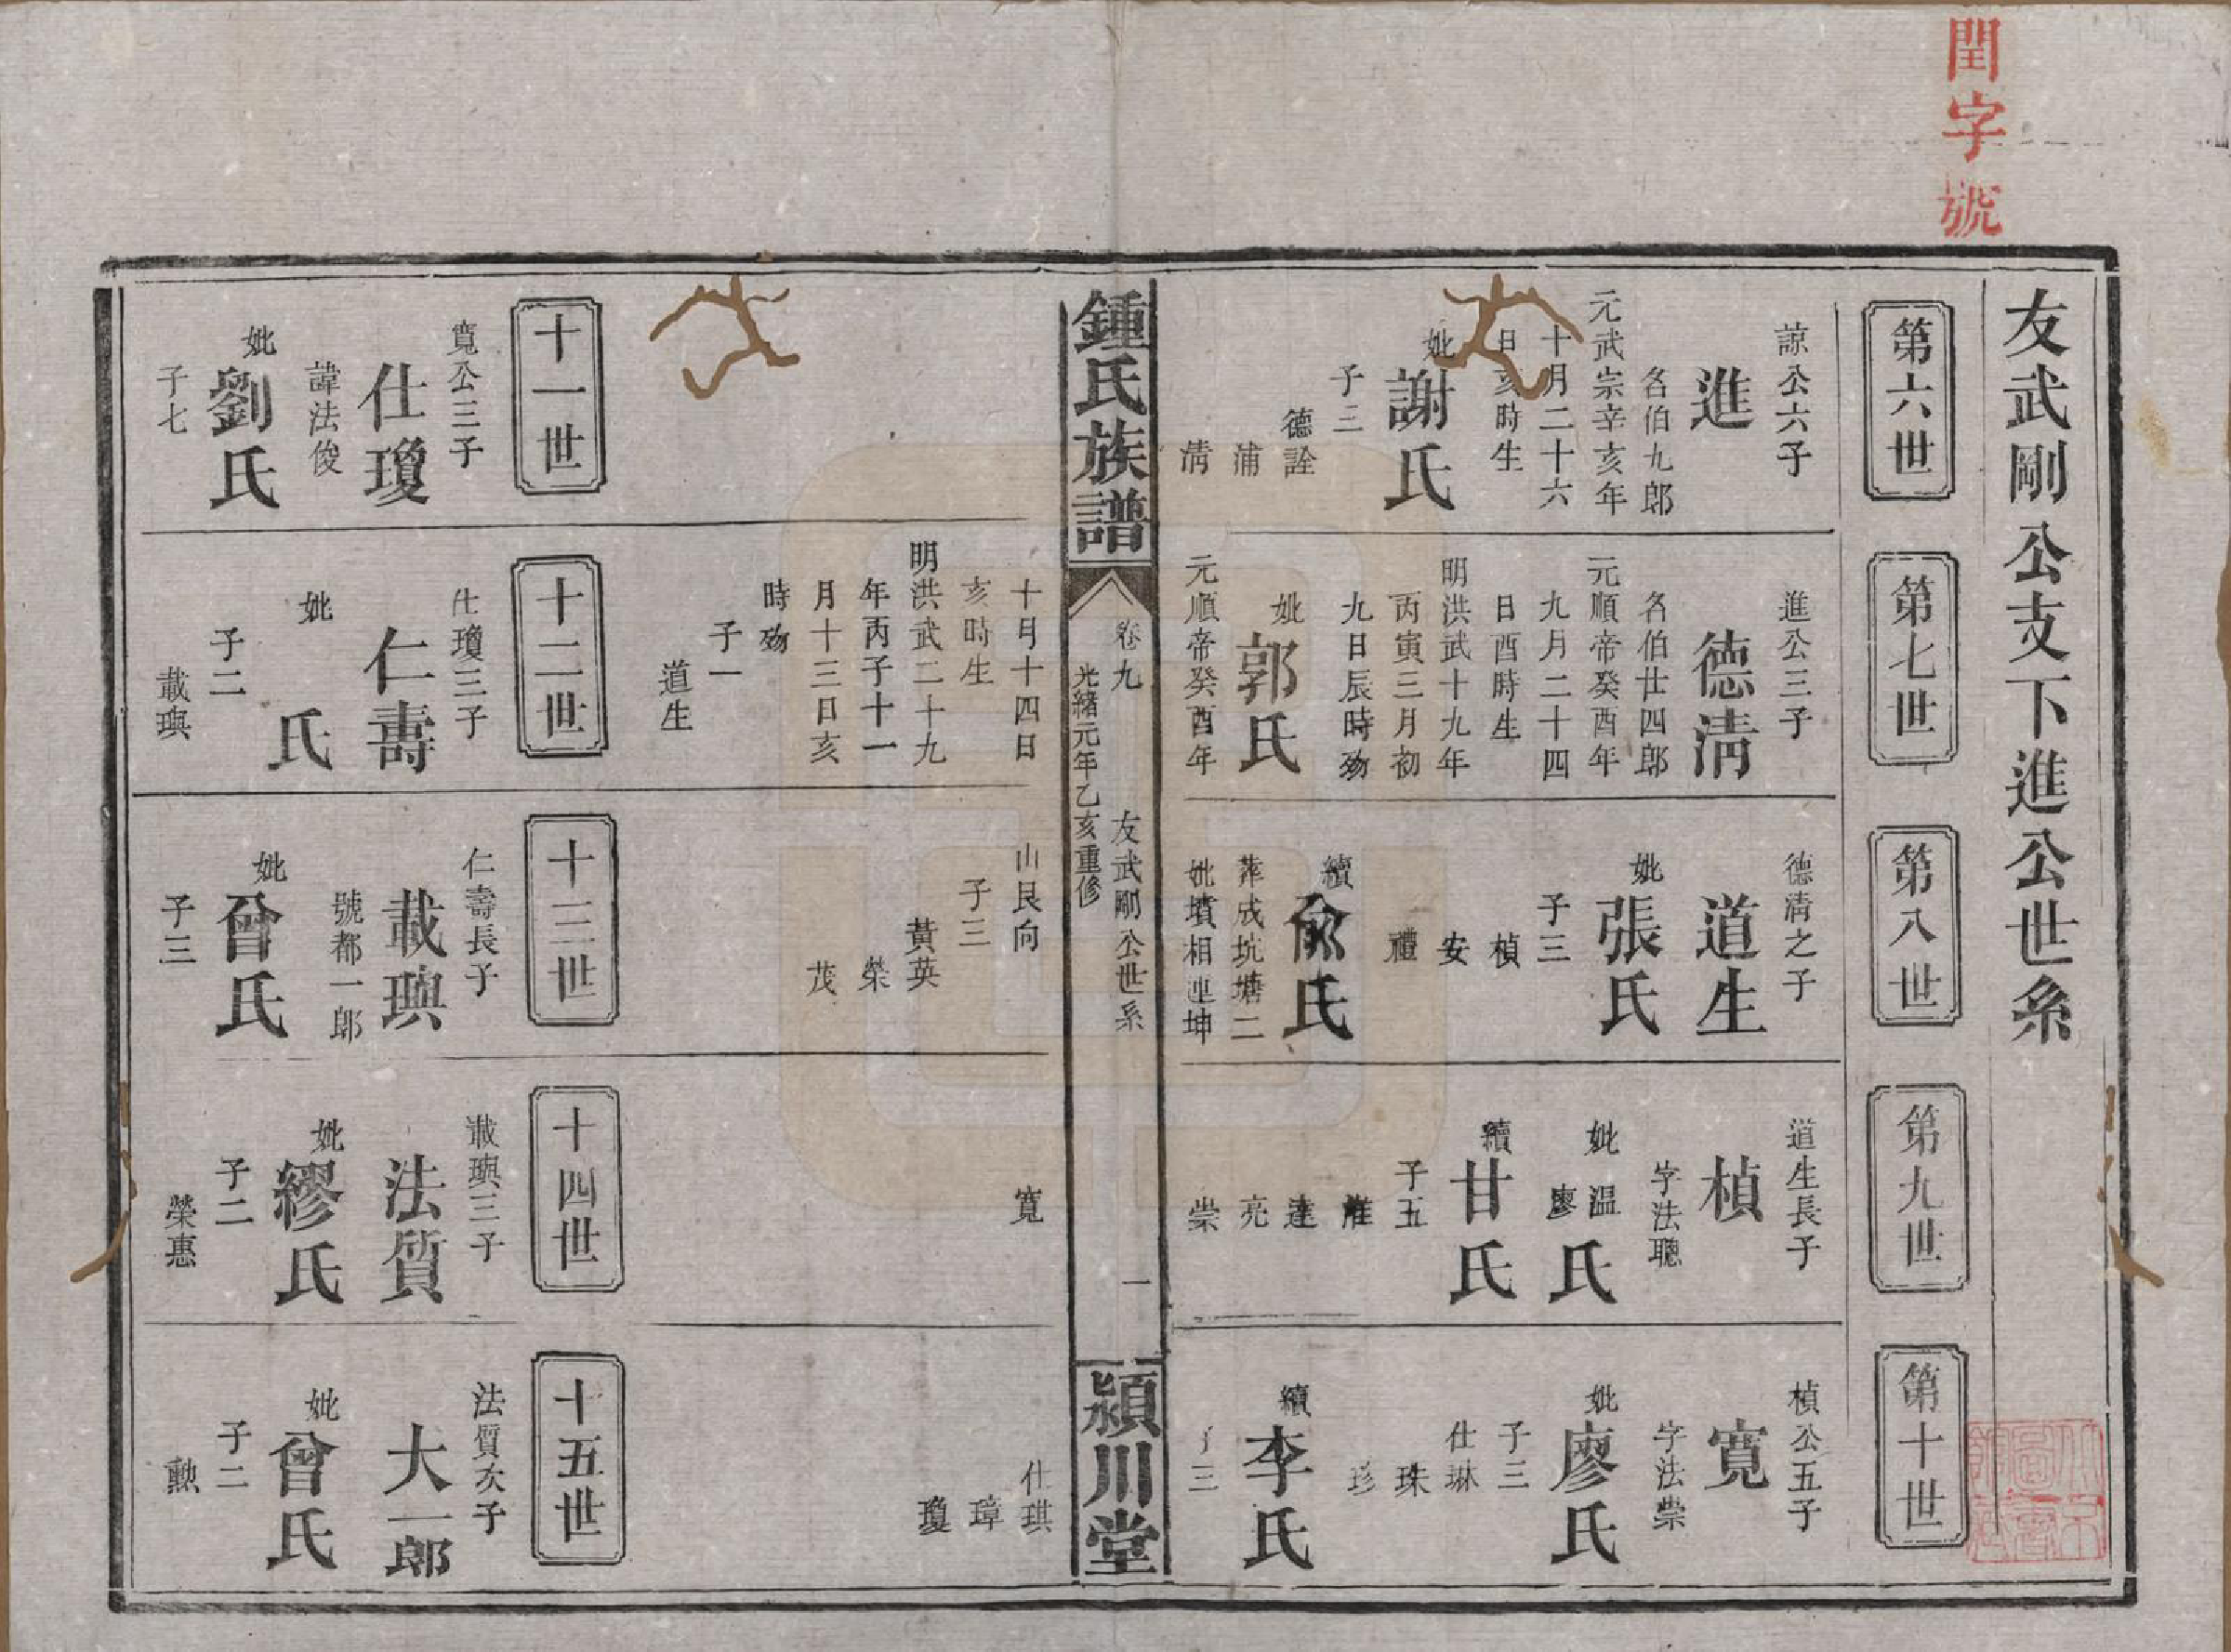 閏字號
友武剛公支下進公世系
第六世
諒公六子
進
名伯九郎
元武宗辛亥年
十月二十六
日亥時生
妣
謝氏
子三
德詮
浦
淸
第七世
進公三子
德淸
名伯廿四郎
元順帝癸酉年
九月二十四
日酉時生
明洪武十九年
丙寅三月初
九日辰時殁
妣
郭氏
元順帝癸酉年
十月十四日
亥時生
明洪武二十九
年丙子十一
月十三日亥
時殁
子一
道生
第八世
德淸之子
道生
妣
張氏
子三
楨
安
禮
續
俞氏
葬成坑塘二
妣墳相連坤
山艮向
子三
黃英
榮
茂
第九世
道生長子
楨
字法聰
妣
溫
廖
氏
續
甘氏
子五
達
亮
崇
寬
第十世
楨公五子
寬
字法崇
妣
廖氏
子三
仕琳
珠
珍
續
李氏
子三
仕琪
璋
瓊
鍾氏族譜
卷九
友武剛公世系
光緒元年乙亥重修
一
潁川堂
十一世
寬公三子
仕瓊
諱法俊
妣
劉氏
子七
十二世
仕瓊三子
仁壽
妣
氏
子二
載璵
十三世
仁壽長子
載璵
號都一郎
妣
曾氏
子三
十四世
載璵三子
法質
妣
繆氏
子二
榮惠
十五世
法質次子
大一郎
妣
曾氏
子二
勲